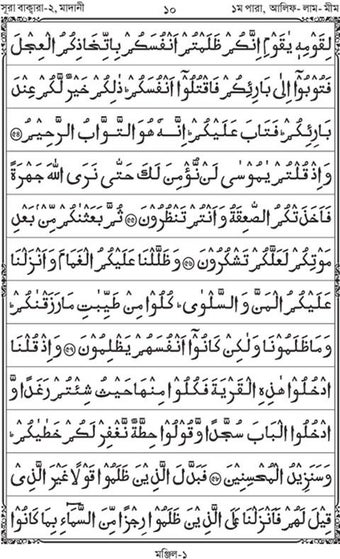 সূরা বাক্বারা-২, মাদানী ১০ ১ম পারা, আলিফ- লাম- মীম
لِقَوْمِهٖ يٰقَوْمِ اِنَّكُمْ ظَلَمْتُمْ اَنْفُسَكُمْ بِاتِّخَاذِكُمُ الْعِجْلَ
فَتُوْبُوْٓا اِلٰى بَارِئِكُمْ فَاقْتُلُوْٓا اَنْفُسَكُمْ ؕ ذٰلِكُمْ خَيْرٌ لَّكُمْ عِنْدَ
بَارِئِكُمْ ؕ فَتَابَ عَلَيْكُمْ ؕ اِنَّهٗ هُوَ التَّوَّابُ الرَّحِيْمُ ۝٥٤
وَاِذْ قُلْتُمْ يٰمُوْسٰى لَنْ نُّؤْمِنَ لَكَ حَتّٰى نَرَى اللّٰهَ جَهْرَةً
فَاَخَذَتْكُمُ الصّٰعِقَةُ وَاَنْتُمْ تَنْظُرُوْنَ ۝٥٥ ثُمَّ بَعَثْنٰكُمْ مِّنْۢ بَعْدِ
مَوْتِكُمْ لَعَلَّكُمْ تَشْكُرُوْنَ ۝٥٦ وَظَلَّلْنَا عَلَيْكُمُ الْغَمَامَ وَاَنْزَلْنَا
عَلَيْكُمُ الْمَنَّ وَالسَّلْوٰى ؕ كُلُوْا مِنْ طَيِّبٰتِ مَا رَزَقْنٰكُمْ ؕ
وَمَا ظَلَمُوْنَا وَلٰكِنْ كَانُوْٓا اَنْفُسَهُمْ يَظْلِمُوْنَ ۝٥٧ وَاِذْ قُلْنَا
ادْخُلُوْا هٰذِهِ الْقَرْيَةَ فَكُلُوْا مِنْهَا حَيْثُ شِئْتُمْ رَغَدًا وَّ
ادْخُلُوا الْبَابَ سُجَّدًا وَّقُوْلُوْا حِطَّةٌ نَّغْفِرْ لَكُمْ خَطٰيٰكُمْ ؕ
وَسَنَزِيْدُ الْمُحْسِنِيْنَ ۝٥٨ فَبَدَّلَ الَّذِيْنَ ظَلَمُوْا قَوْلًا غَيْرَ الَّذِيْ
قِيْلَ لَهُمْ فَاَنْزَلْنَا عَلَى الَّذِيْنَ ظَلَمُوْا رِجْزًا مِّنَ السَّمَآءِ بِمَا كَانُوْا
মঞ্জিল-১